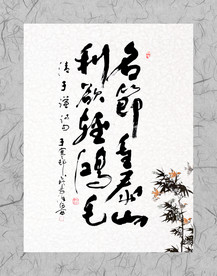 名節重泰山
利欲輕鴻毛
清于謙詩句